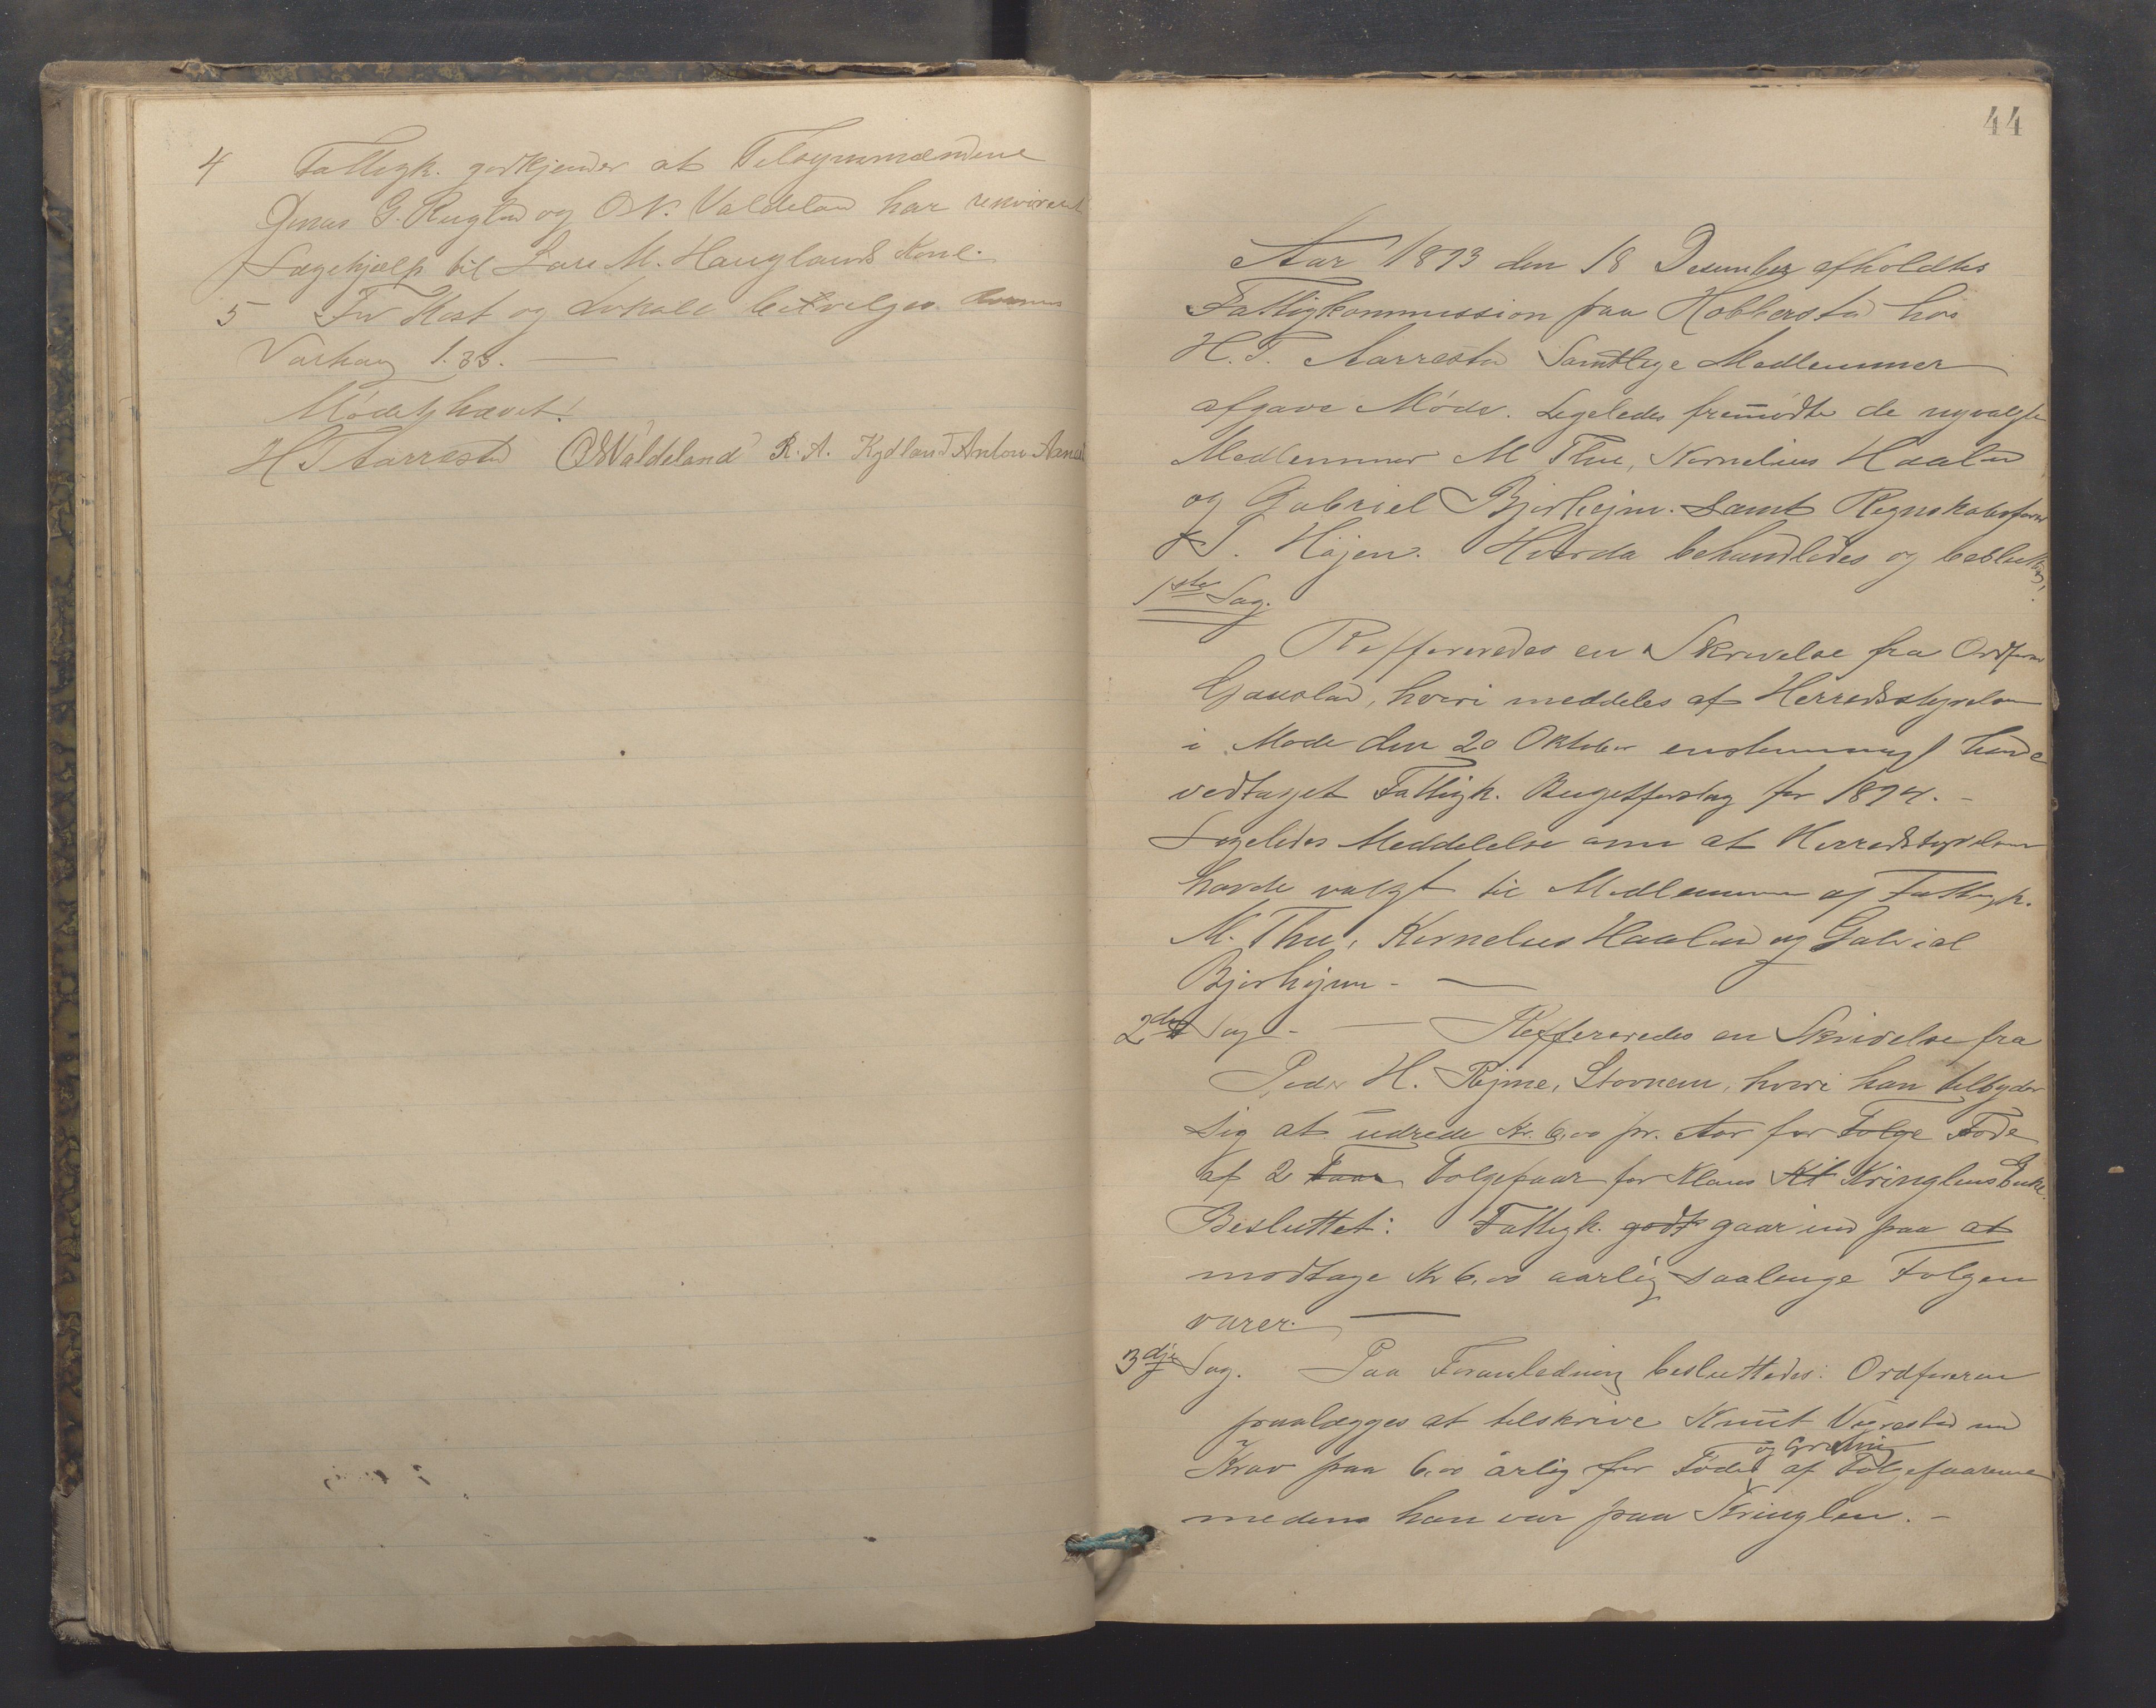 4 Fattigk. godkjender at Tilsynsmændene
Jonas G. Rugland og O.N. Valdeland har rekvireret
Lægehjælp til Lars M. Hauglands Kone.
5 For Kost og Lokale bevilges
Varhaug 1.33. —
Mødet hævet!
H T Aarrestad O N Valdeland R. A. Kydland Anton
44
Aar 1893 den 18 Desember afholdtes
Fattigkommission paa Hobberstad hos
H. T. Aarrestad Samtlige Medlemmer
afgave Møde. Ligeledes fremmødte de nyvalgte
Medlemmer M Thu, Kornelius Haaland
og Gabriel Bjorhejm. Samt Regnskabsfører
T. Højen. Hvorda behandledes og besluttedes,
1ste Sag.
Reffereredes en Skrivelse fra Ordfører
hvori meddeles at Herredsstyrelsen
i Mode den 20 Oktober enstemmigt havde
vedtaget Fattigk. Bugetforslag for 1894. -
Ligeledes Meddelelse om at Herredstyrelsen
havde valgt til Medlemmer af Fattigk.
M. Thu, Kornelius Haaland og Gabriel
Bjorhejm - —
2den Sag - — Reffereredes en Skrivelse fra
Peder H. Rejme, Stovnem, hvori han tilbyder
sig at udrede Kr. 6,00 pr. Aar for Folge Fode
af 2 Faar Folgefaar for Klaus Kl Kringlens Enke.
Besluttet: Fattigk. godk gaar ind paa at
modtage Kr 6,00 aarlig saalenge Folgen
varer. —
3dje Sag. Paa Foranledning besluttedes: Ordføreren
paalægges at tilskrive Knut Vigrestad med
Krav paa 6,00 årlig for Føde og Græsning af Følgefaarene
medens han var paa Kringlen. -